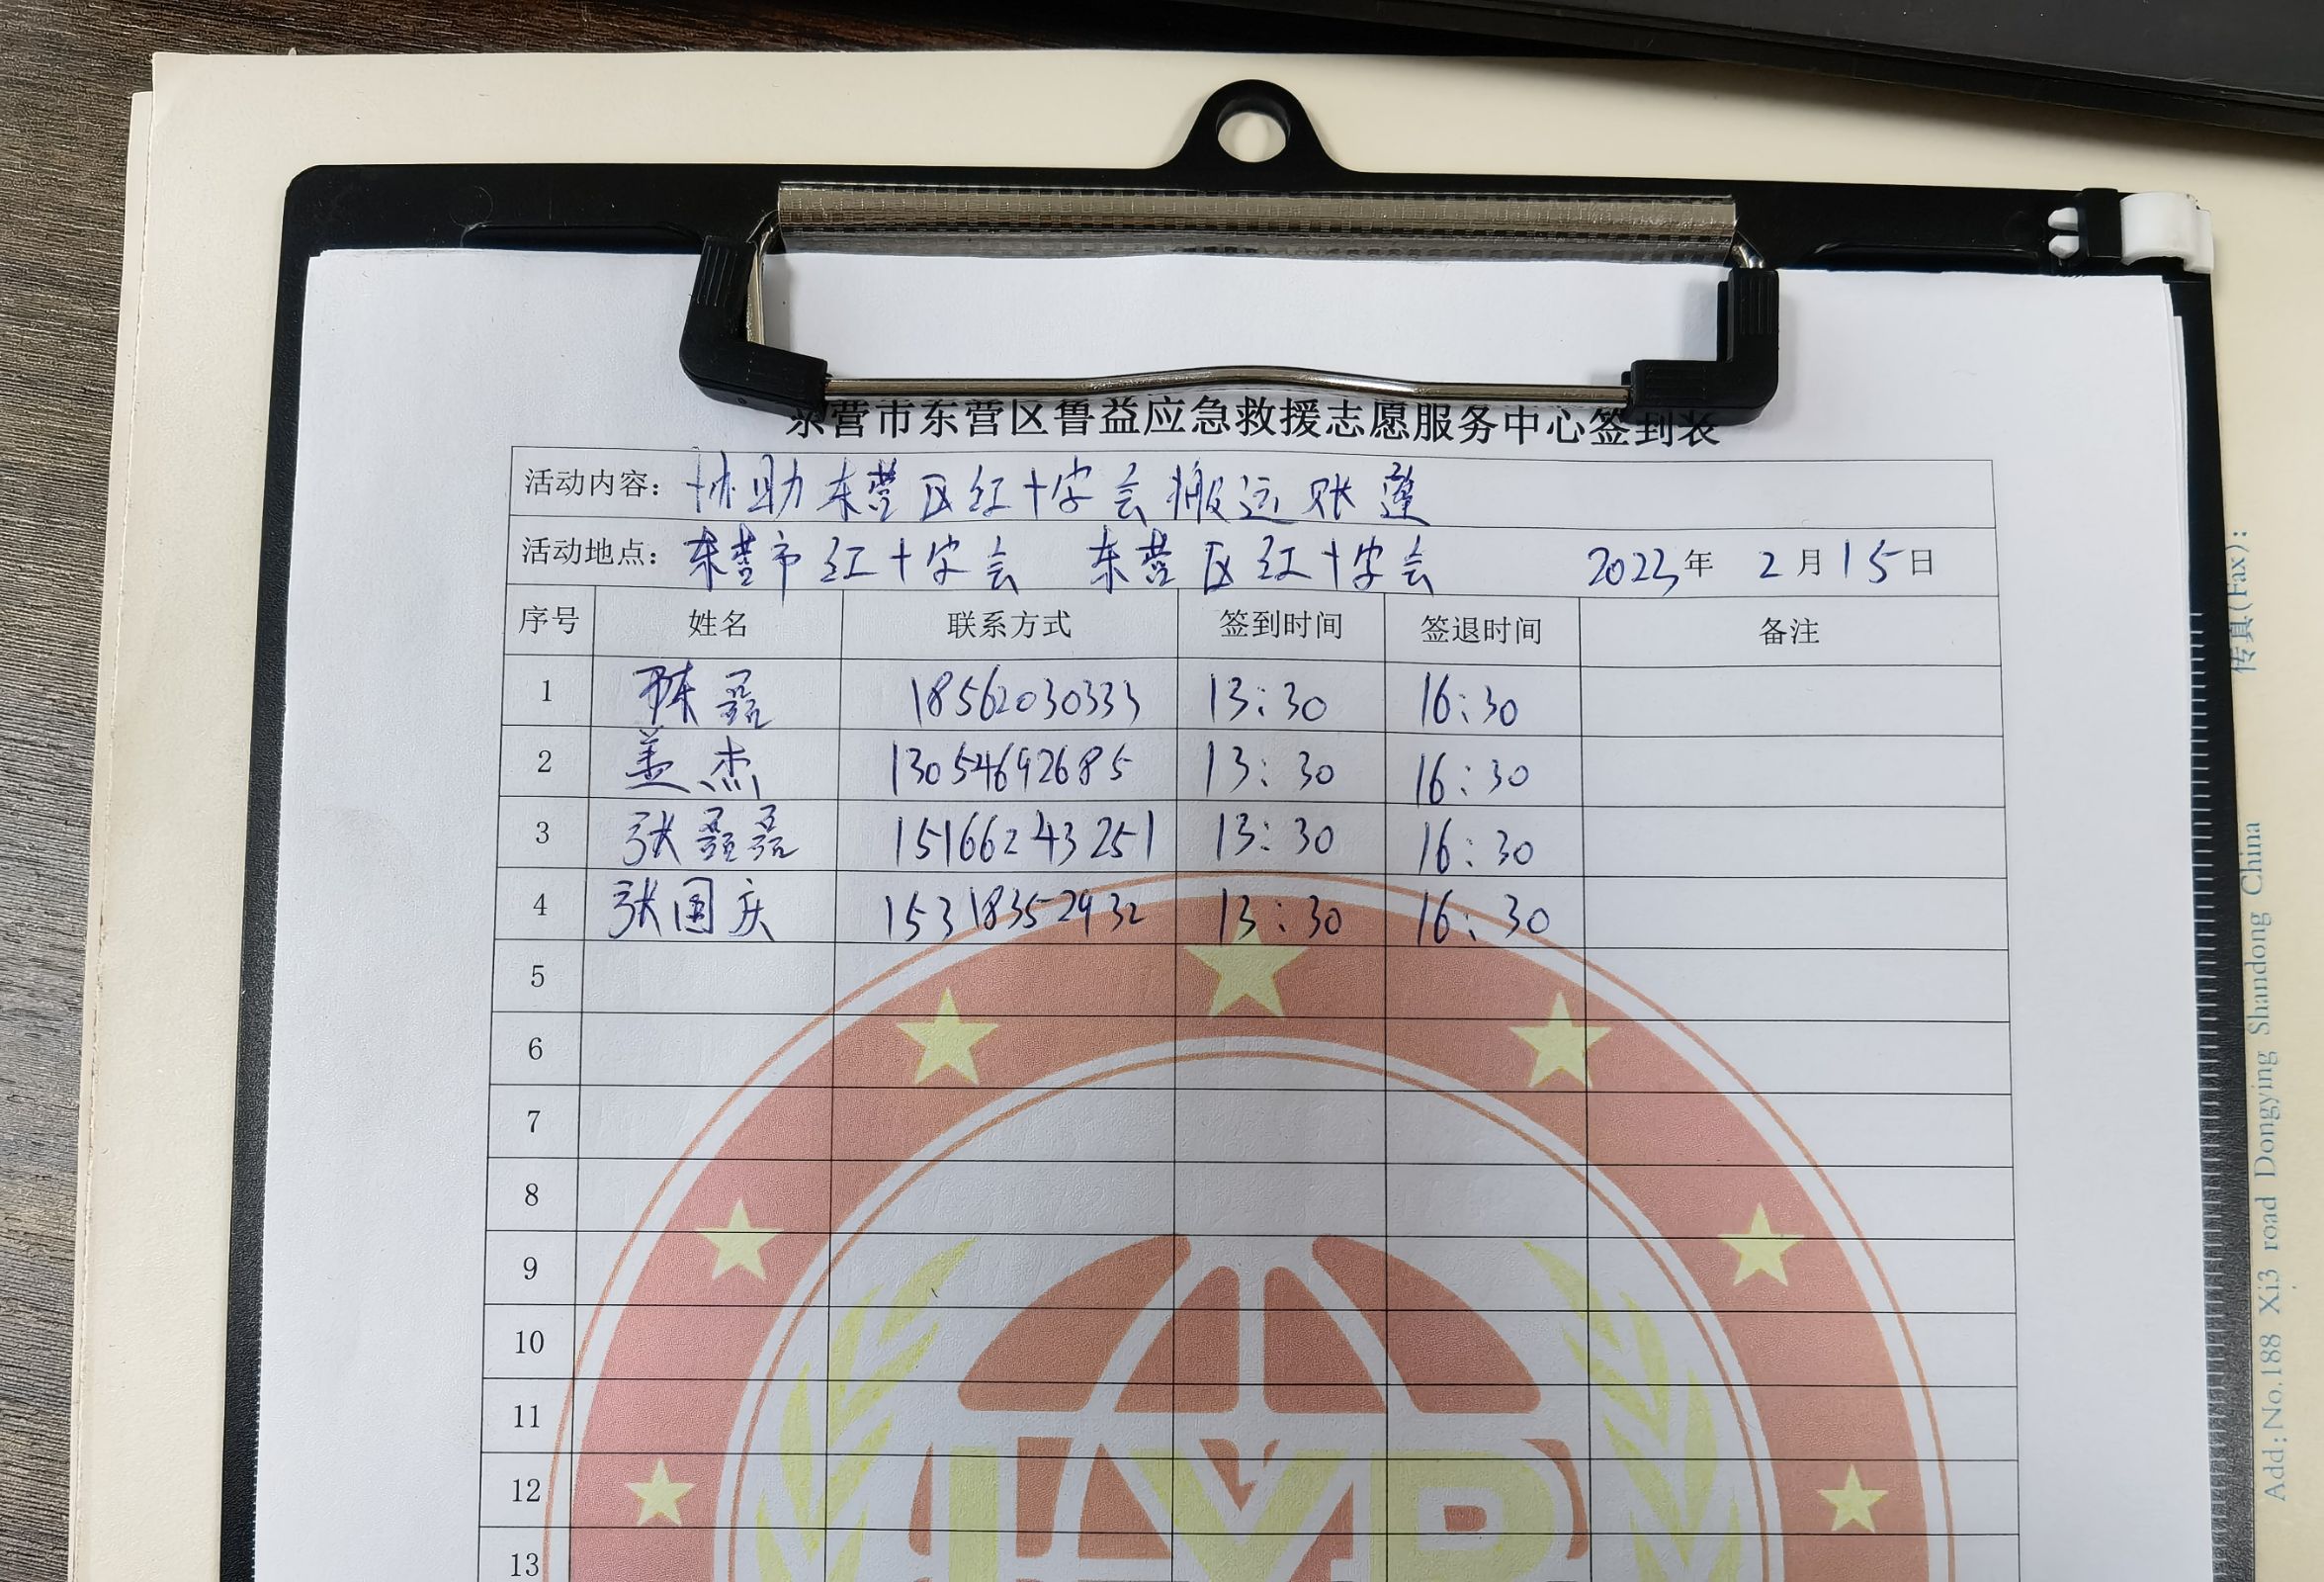 东营市东营区鲁益应急救援志愿服务中心签到表
活动内容：协助东营区红十字会搬运账蓬
活动地点：东营市红十字会 东营区红十字会 2023年 2月15日
序号 姓名 联系方式 签到时间 签退时间 备注
1 陈磊 18562030333 13:30 16:30
2 盖杰 13054692685 13:30 16:30
3 张磊磊 15166243251 13:30 16:30
4 张国庆 15318352932 13:30 16:30
5
6
7
8
9
10
11
12
13
LYR
传真(Fax):
Add:No.188 Xi3 road Dongying Shandong China